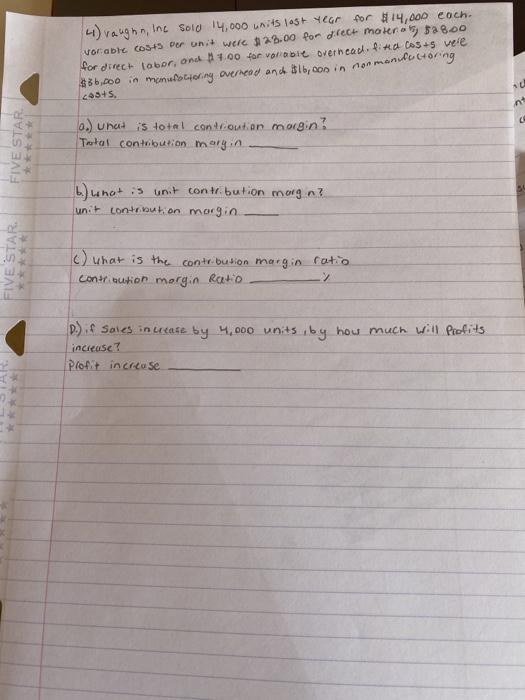 4) vaughn, Inc sold 14,000 units last year for $14,000 each.
variable costs per unit were $28.00 for direct materials, $28.00
for direct labor, and $7.00 for variable overhead. fixed costs were
$36,000 in manufactoring overhead and $16,000 in nonmanufactoring
costs.
a.) what is total contribution margin?
Total contribution margin
b.) what is unit contribution margin?
unit contribution margin
c.) what is the contribution margin ratio
contribution margin Ratio %
D.) if sales increase by 4,000 units, by how much will Profits
increase?
Profit increase
FIVE STAR
FIVE STAR